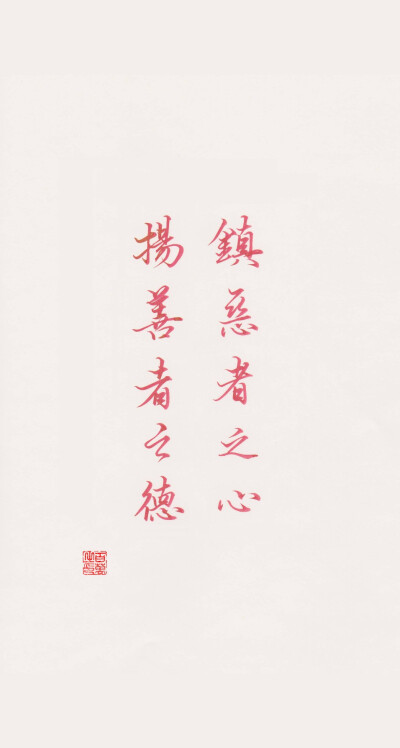 鎮惡者之心
揚善者之德